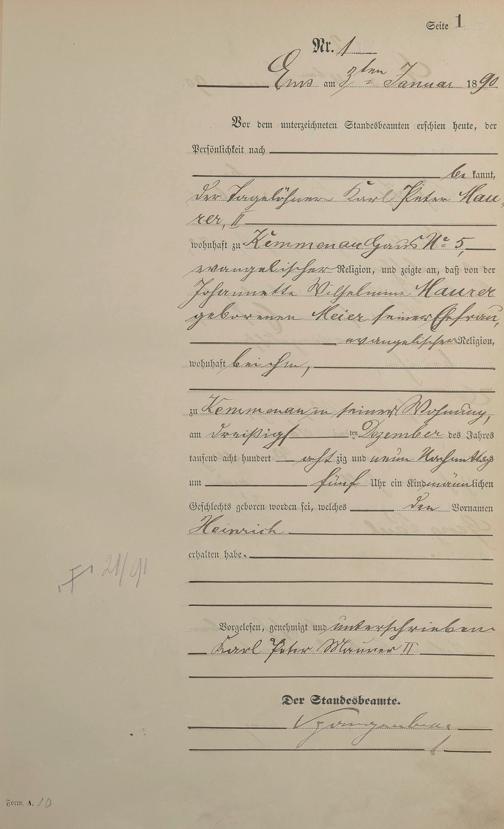 Seite 1
Nr. 1
Ems am 3ten Januar 1890
Vor dem unterzeichneten Standesbeamten erschien heute, der
Persönlichkeit nach
be kannt,
der Tagelöhner Karl Peter Mau-
rer, II
wohnhaft zu Kemmenau Haus No 5,
evangelischer Religion, und zeigte an, daß von der
Johannette Wilhelmine Maurer
geborenen Meier seiner Ehefrau,
evangelischer Religion,
wohnhaft bei ihm,
zu Kemmenau in seiner Wohnung,
am dreißigs ten Dezember des Jahres
tausend acht hundert acht zig und neun Nachmittags
um fünf Uhr ein Kind männlichen
Geschlechts geboren worden sei, welches den Vornamen
Heinrich
erhalten habe.
Vorgelesen, genehmigt und unterschrieben
Karl Peter Maurer II
Der Standesbeamte.
Form. A. 10